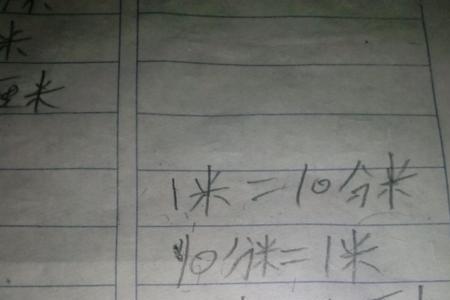 米
厘米
1米=10分米
10分米=1米